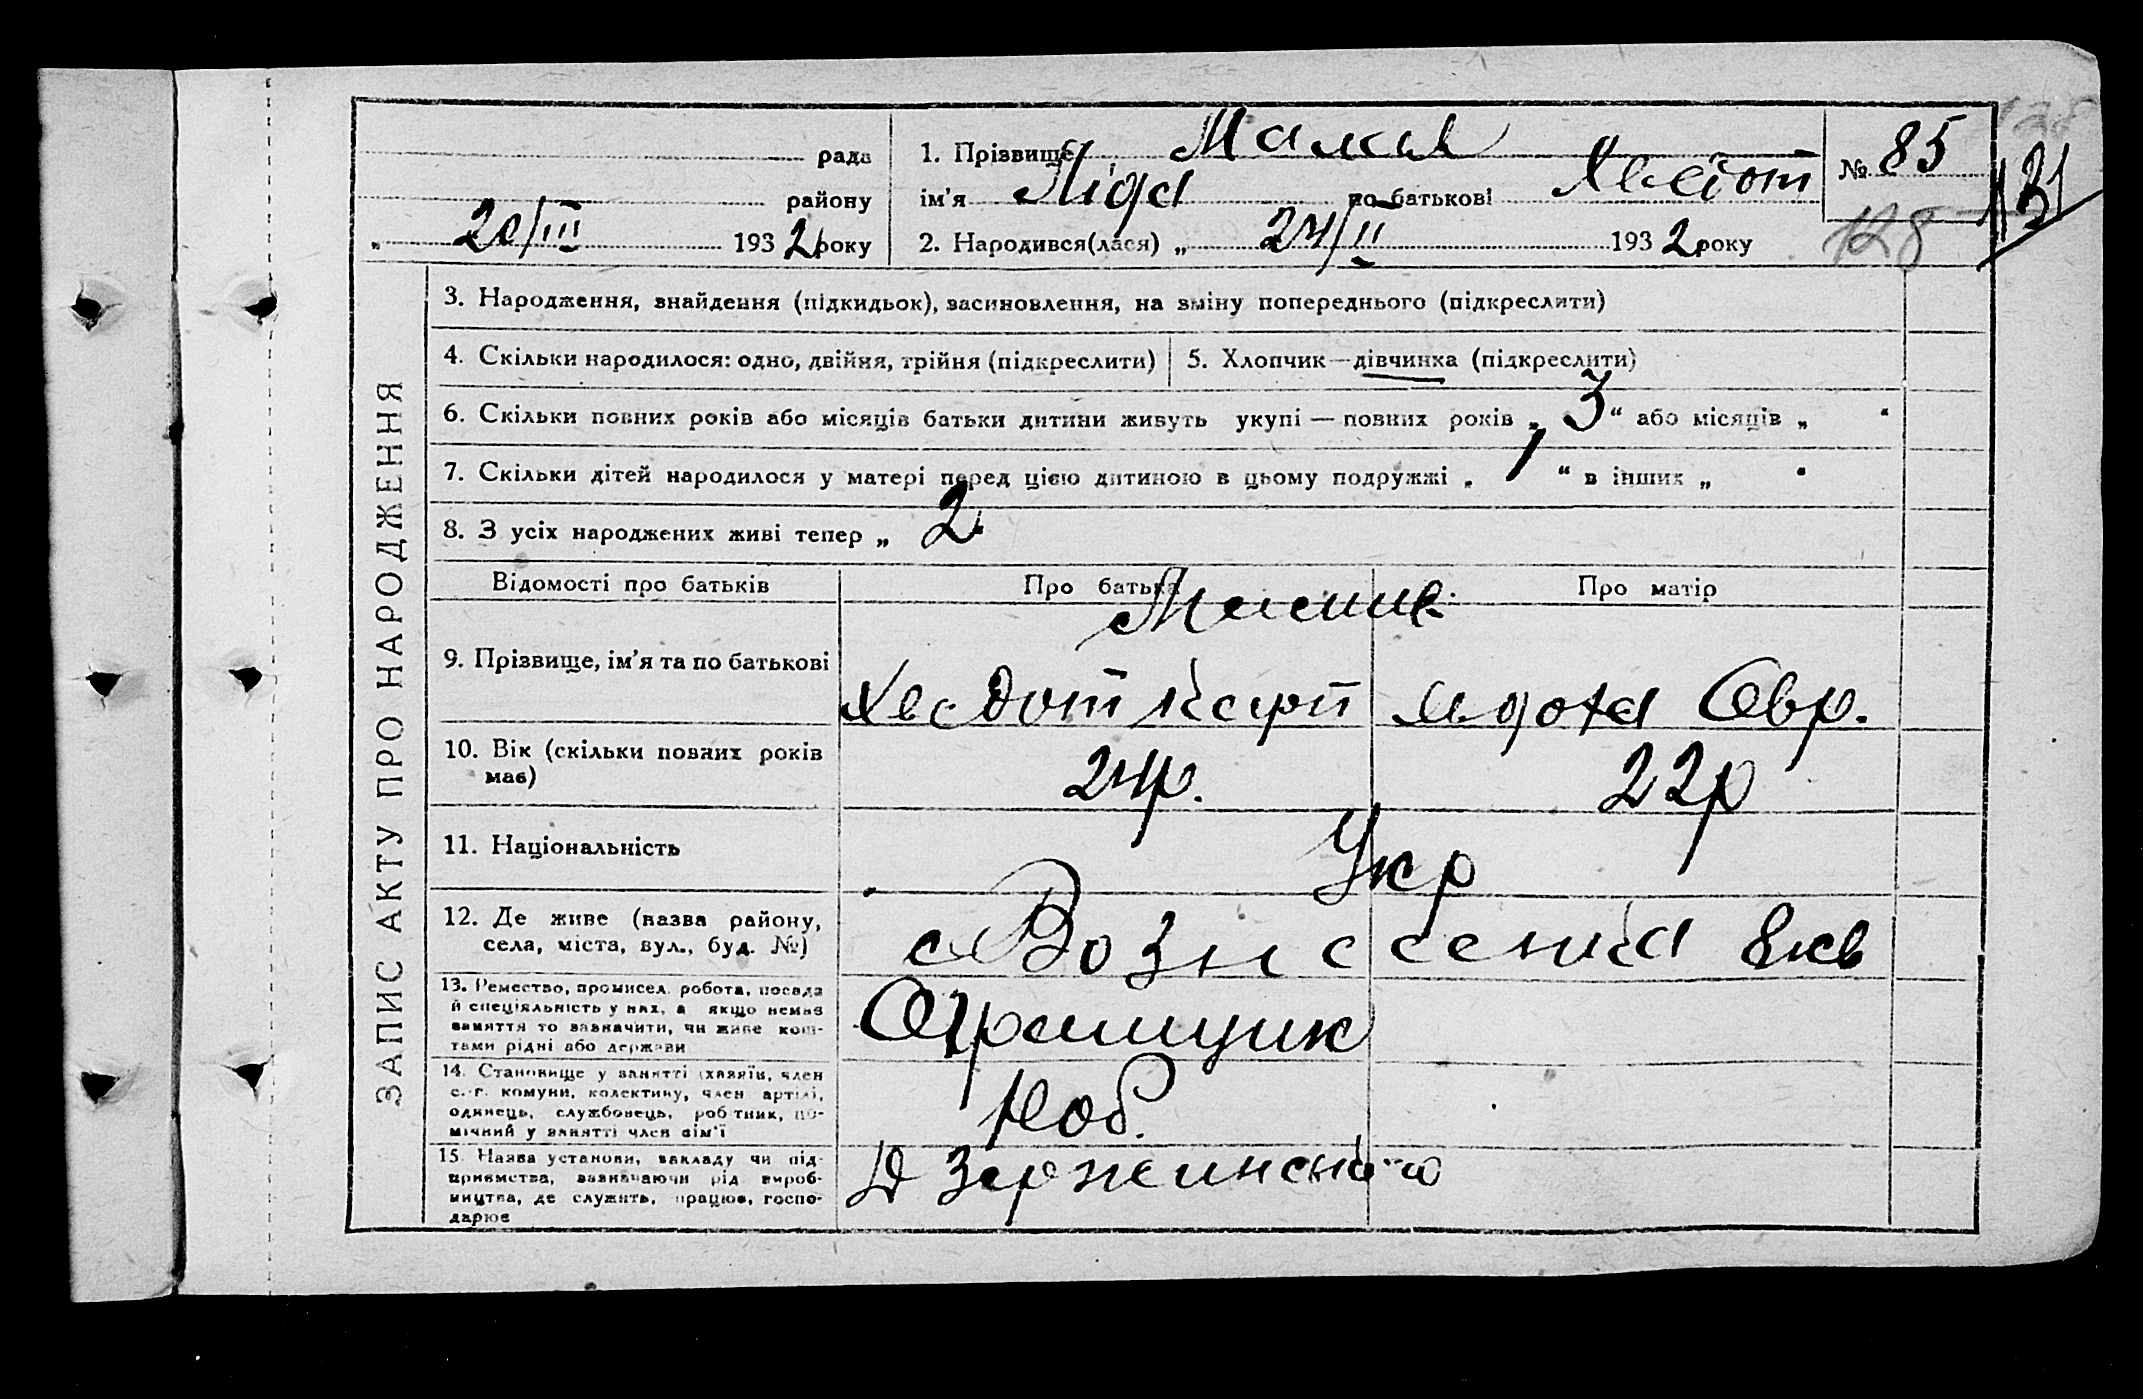 рада
району
„ 20/III 1932 року
1. Прізвище
ім'я Ліда по батькові Хведот
2. Народився(лася) „ 24/II 1932 року
№ 85
131
128
ЗАПИС АКТУ ПРО НАРОДЖЕННЯ
3. Народження, знайдення (підкидьок), засиновлення, на зміну попереднього (підкреслити)
4. Скільки народилося: одно, двійня, трійня (підкреслити)
5. Хлопчик—дівчинка (підкреслити)
6. Скільки повних років або місяців батьки дитини живуть укупі — повних років „ 3 “ або місяців „ “
7. Скільки дітей народилося у матері перед цією дитиною в цьому подружжі „ 1 “ в інших „ “
8. З усіх народжених живі тепер „ 2
Відомості про батьків Про батька Про матір
9. Прізвище, ім'я та по батькові
Хведот Карп Явдоха Овр.
10. Вік (скільки повних років
має)
24р. 22р
11. Національність Укр
12. Де живе (назва району,
села, міста, вул., буд. №)
с Вознесенка
13. Ремество, промисел, робота, посада
й спеціяльність у них, а якщо немає
заняття то зазначити, чи живе кош-
тами рідні або держави
14. Становище у занятті (хазяїн, член
с.-г. комуни, колективу, член артілі,
одинець, службовець, робітник, по-
мічний у занятті член сім'ї
Роб.
15. Назва установи, закладу чи під-
приємства, зазначаючи рід вироб-
ництва, де служить, працює, госпо-
дарює
Дзержинського